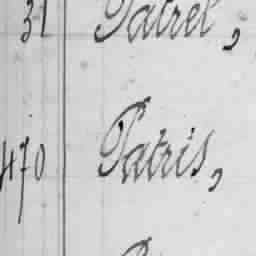 31 Patrel,
470 Patris,